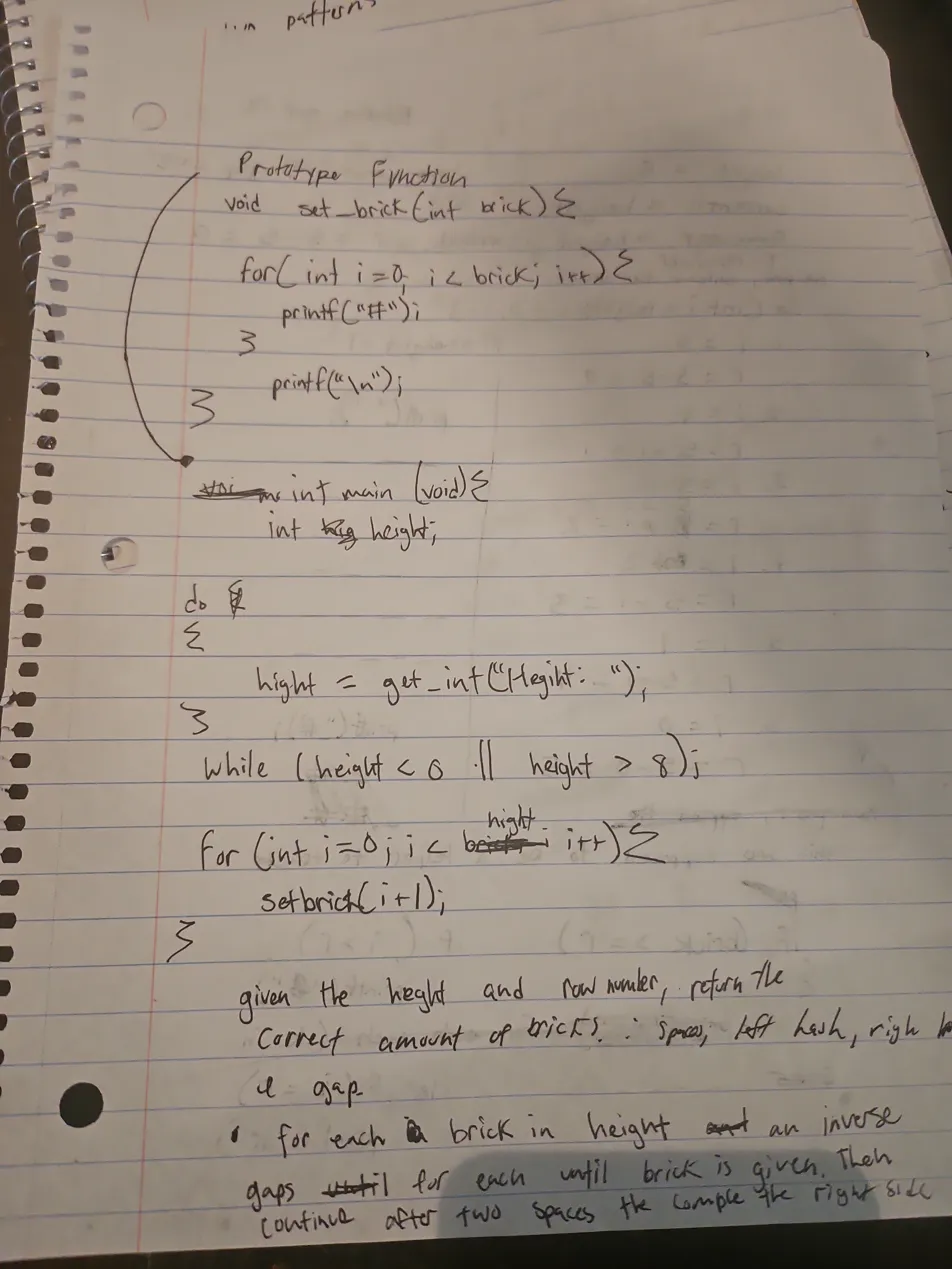 ... in patterns
Prototype Function
void set_brick(int brick){
for( int i=0, i < brick; i++){
printf("#");
}
printf("\n");
}
int main (void){
int height;
do
{
hight = get_int("Hegiht: ");
}
while (height < 0 || height > 8);
hight
for (int i=0; i < i++){
setbrick(i+1);
}
given the heght and row number, return the
correct amount of bricks. : spaces, left hash, righ
gap
for each brick in height an inverse
gaps for each until brick is given. Then
continue after two spaces the comple the right side